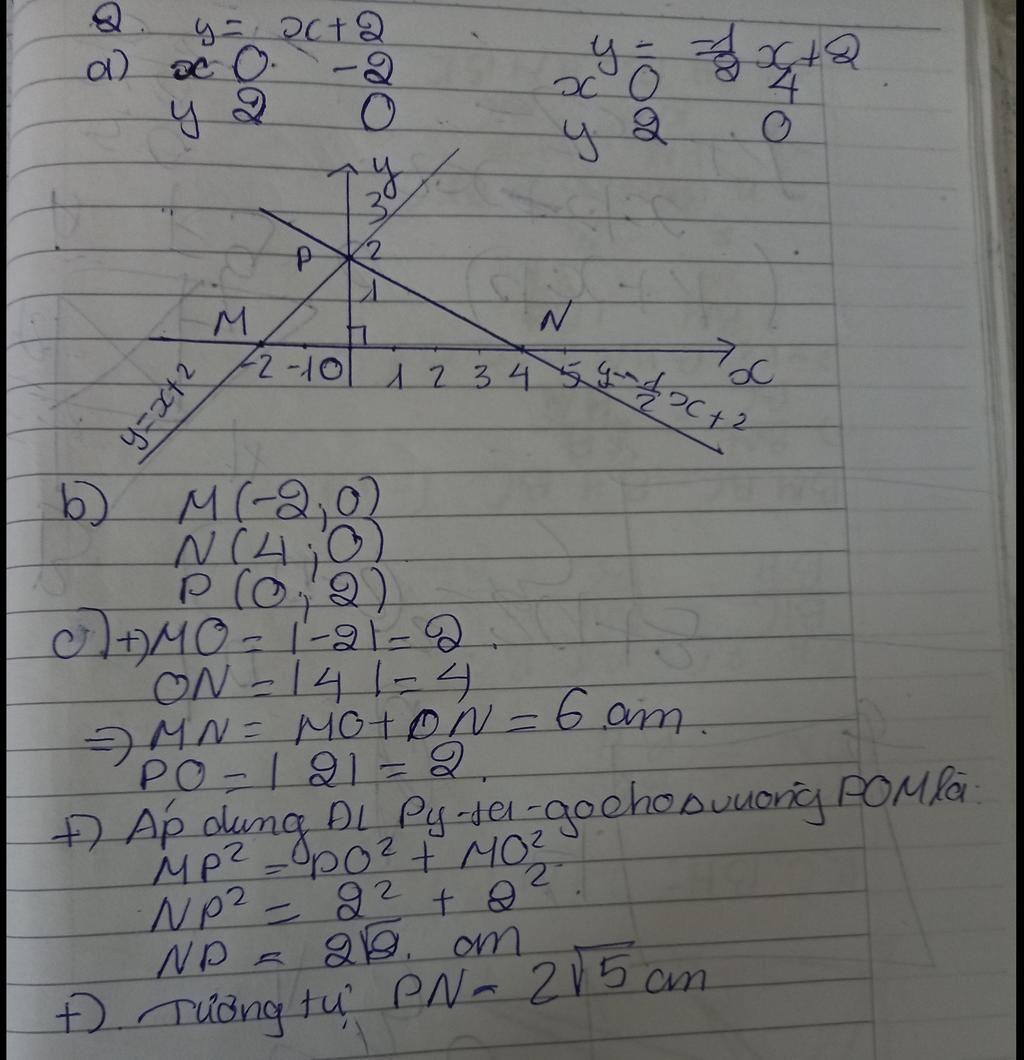 2. y = x+2
a) x 0 -2
y 2 0
y = -1/2 x+2
x 0 4
y 2 0
y
3
P 2
1
M N
-2 -1 0 1 2 3 4 5 x
y=x+2
y=-1/2 x+2
b) M(-2;0)
N(4;0)
P(0;2)
c) +) MO = |-2| = 2.
ON = |4| = 4
=> MN = MO + ON = 6 cm.
PO = |2| = 2.
+) Áp dụng ĐL Py-ta-go cho Δ vuông POM là:
MP² = PO² + MO²
NP² = 2² + 2².
NP = 2√2. cm
+). Tương tự PN = 2√5 cm